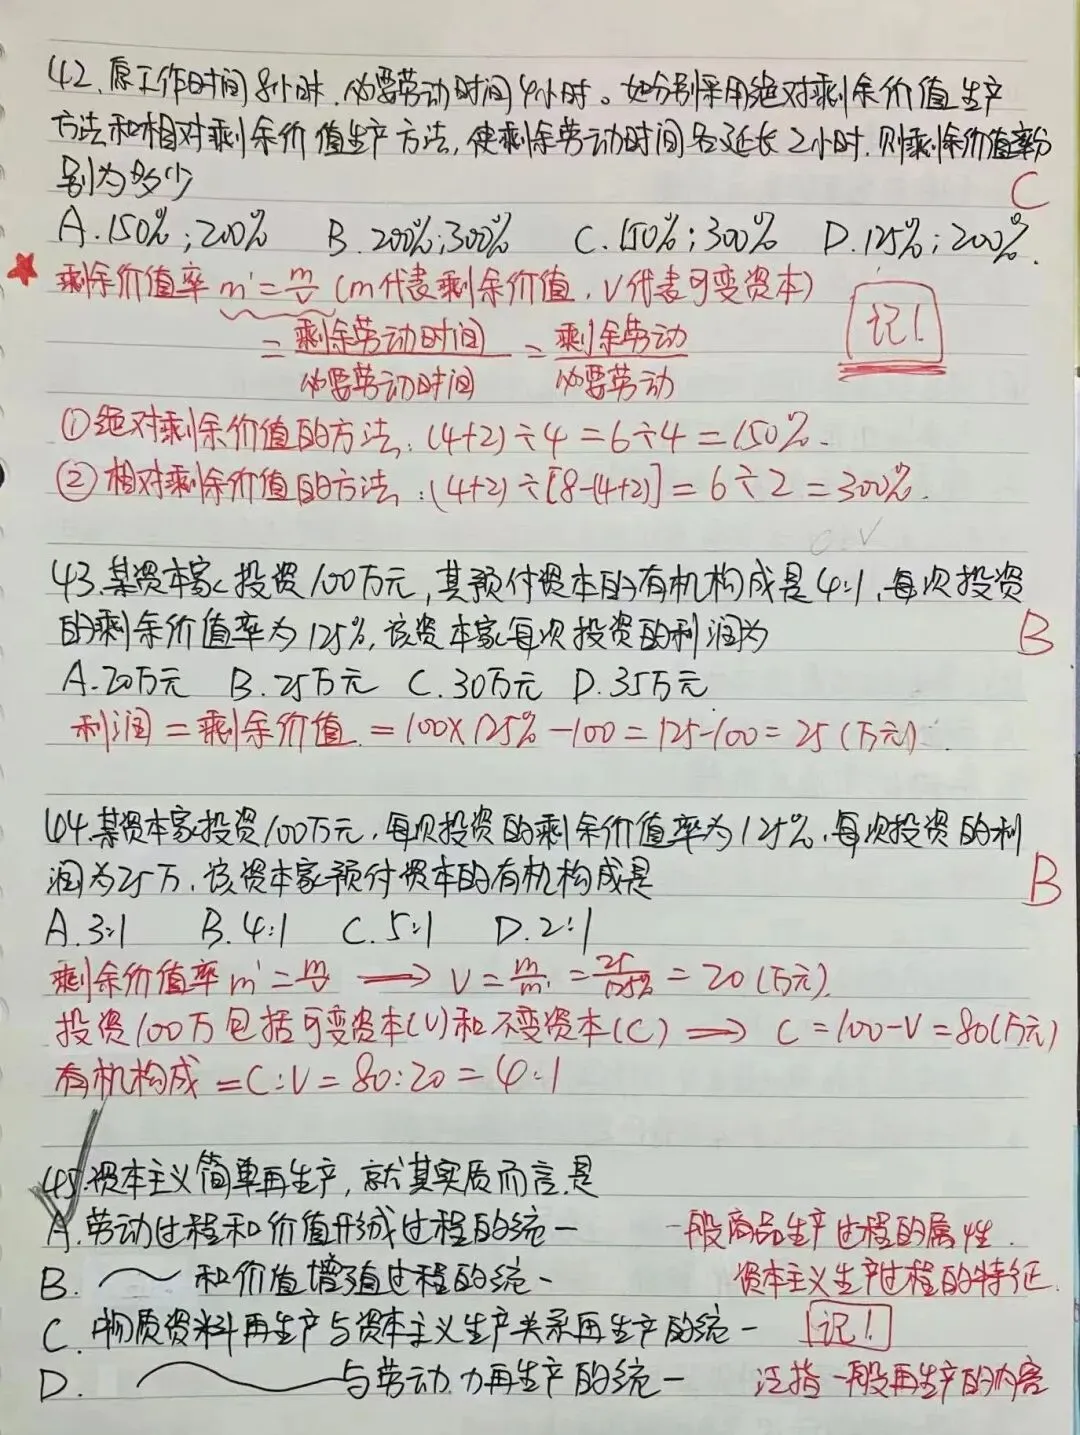 42、原工作时间8小时，必要劳动时间4小时。如分别采用绝对剩余价值生产
方法和相对剩余价值生产方法，使剩余劳动时间各延长2小时，则剩余价值率分
别为多少
C
A.150%；200% B.200%；300% C.150%；300% D.125%；200%.
剩余价值率 m'=m/v (m代表剩余价值，V代表可变资本)
记！
=剩余劳动时间/必要劳动时间=剩余劳动/必要劳动
①绝对剩余价值的方法：(4+2)÷4=6÷4=150%.
②相对剩余价值的方法：(4+2)÷[8-(4+2)]=6÷2=300%.
43.某资本家投资100万元，其预付资本的有机构成是4:1，每次投资
的剩余价值率为125%，该资本家每次投资的利润为
B
A.20万元 B.25万元 C.30万元 D.35万元
利润=剩余价值=100×125%-100=125-100=25(万元).
44.某资本家投资100万元，每次投资的剩余价值率为125%，每次投资的利
润为25万，该资本家预付资本的有机构成是
B
A.3:1 B.4:1 C.5:1 D.2:1
剩余价值率 m'=m/v → V=m/m'=25/125%=20(万元).
投资100万包括可变资本(V)和不变资本(C) ⇒ C=100-V=80(万元)
有机构成=C:V=80:20=4:1
45.资本主义简单再生产，就其实质而言，是
A.劳动过程和价值形成过程的统一 一般商品生产过程的属性.
B. 和价值增殖过程的统一 资本主义生产过程的特征.
C.物质资料再生产与资本主义生产关系再生产的统一 记！
D. 与劳动力再生产的统一 泛指一般再生产的内容